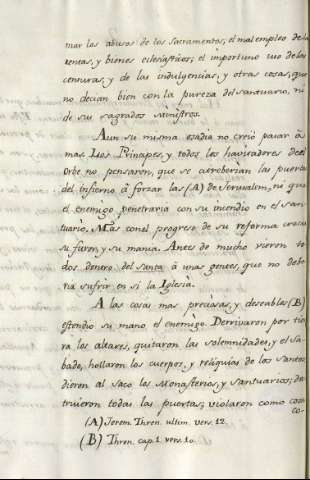 mar los abusos de los Sacramentos; el mal empleo de la
rentas, y bienes eclesiásticos; el importuno uso de las
censuras, y de las indulgencias, y otras cosas, que
no decian bien con la pureza del santuario, ni
de sus sagrados ministros.
Aun su misma osadia no creió pasar à
mas. Los Principes, y todos los havitadores del
Orbe no pensaron, que se atreberian las puertas
del infierno à forzar las (A) de Jerusalem, ni que
el enemigo penetraria con su incendio en el san-
tuario. Mas con el progreso de su reforma crecia
su furor, y su mania. Antes de mucho vieron to
dos dentro del santa à unas gentes, que no debe
ria sufrir en si la Iglesia.
A las cosas mas preciosas, y deseables (B)
estendio su mano el enemigo. Derrivaron por tie
ra los altares, quitaron las solemnidades, y el sa-
bado, hollaron los cuerpos, y reliquias de los santos
dieron al saco los Monasterios, y santuarios; des
truieron todas las puertas; violaron como cosa
co-
(A) Jerem. Thren. ultim. vers. 12.
(B) Thren. cap. 1. vers. 10.